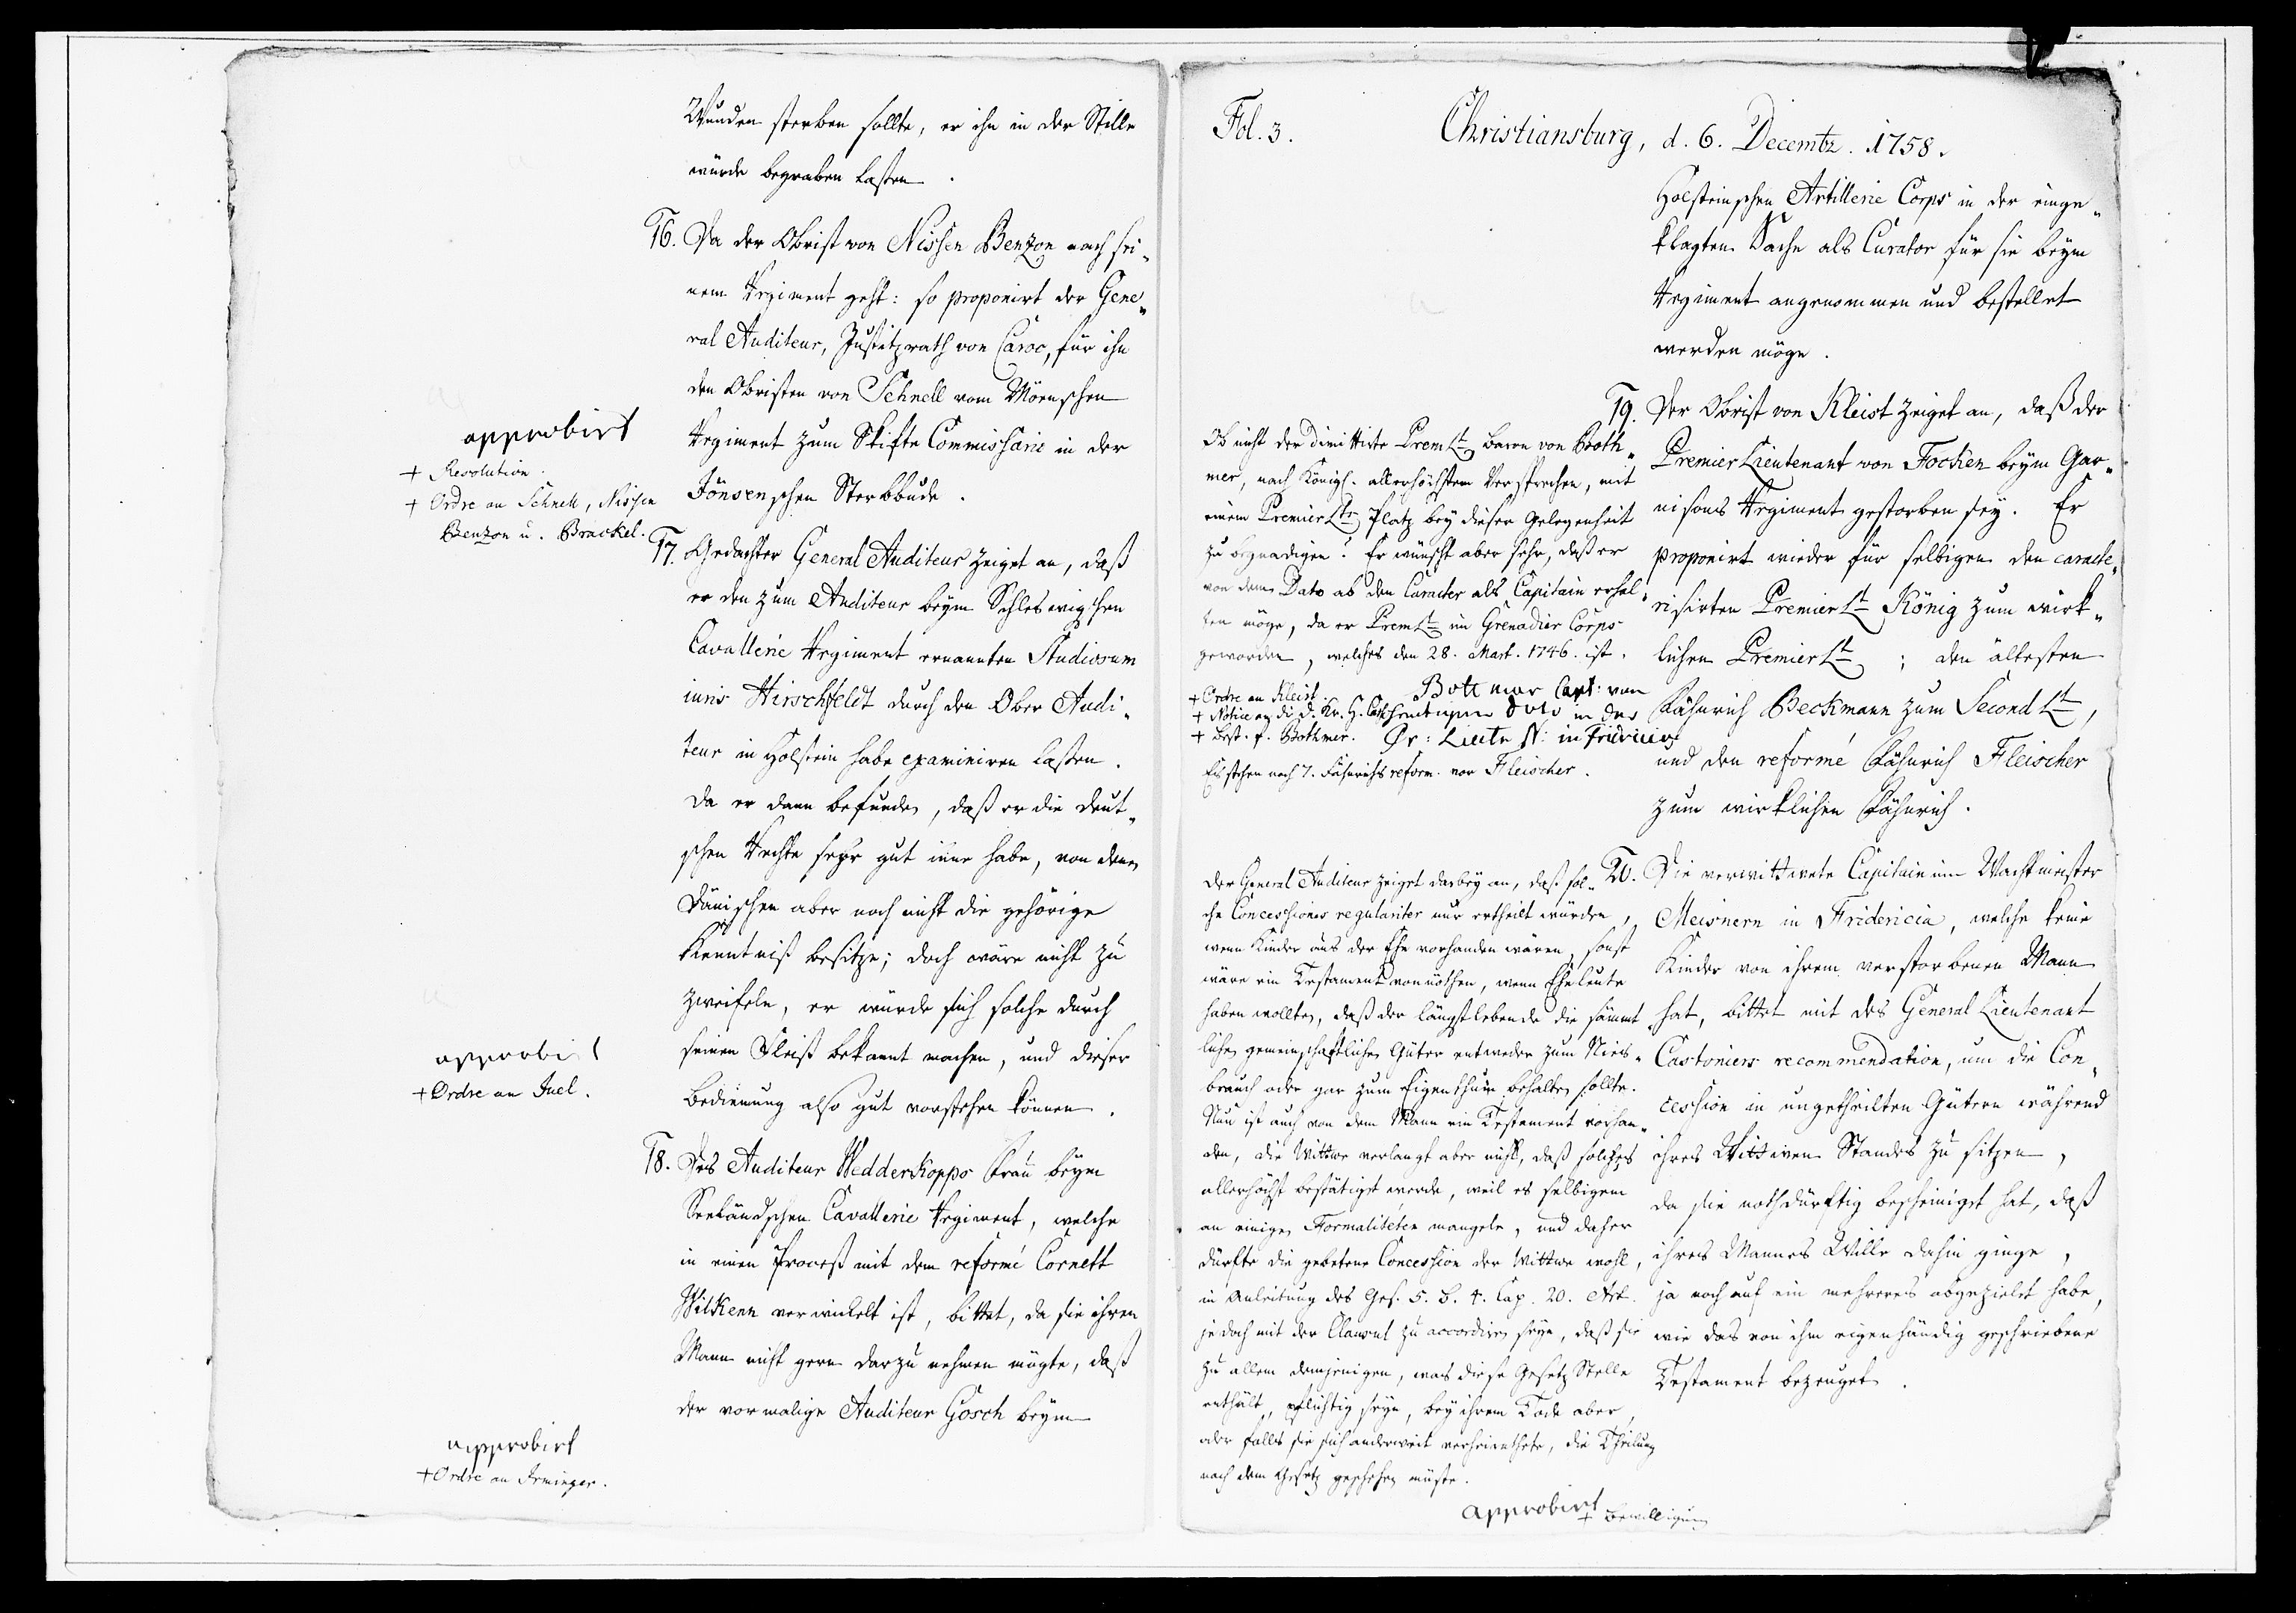 Wunden sterben sollte, er ihn in der Stille
würde begraben laßen.
16. Da der Obrist von Nissen Benzon nach sei„
nem Regiment geht: so proponirt der Gene„
ral Auditeur, Justitzrath von Caroc, für ihn
den Obristen von Schnell vom Möenschen
Regiment zum Skifte Commissario in der
Jönsenschen Sterbbude.
approbirt
+ Resolution.
+ Ordre an Schnell, Nissen
Benzon u. Brackel.
17. Gedachter General Auditeur zeiget an, daß
er den zum Auditeur beym Schleswigschen
Cavallerie Regiment ernannten Studiosum
iuris Hirschfeldt durch den Ober Audi„
teur in Holstein habe examiniren laßen.
da er dann befunden, daß er die deut„
schen Rechte sehr gut inne habe, von denen
Dänischen aber noch nicht die gehörige
Kenntniß besitze; doch wäre nicht zu
zweifeln, er würde sich solche durch
seinen Fleiß bekannt machen, und dieser
Bedienung also gut vorstehen können.
approbirt
+ Ordre an Juel.
18. Des Auditeur Wedderkopps Frau beym
Seeländschen Cavallerie Regiment, welche
in einen Proceß mit dem reformé Cornett
Wilkenn verwickelt ist, bittet, da sie ihren
Mann nicht gern darzu nehmen mögte, daß
der vormalige Auditeur Gosch beym
approbirt
+ Ordre an Irminger.
Fol. 3. Christiansburg, d. 6. Decembr. 1758.
Holsteinschen Artillerie Corps in der einge„
klagten Sache als Curator für sie beym
Regiment angenommen und bestellet
werden möge.
19. Der Obrist von Kleist zeiget an, daß der
Premier Lieutenant von Focken beym Gar„
nisons Regiment gestorben sey. Er
proponirt wieder für selbigen den caracte„
risirten Premier Lt König zum wirk„
lichen Premier Lt; den ältesten
Fähnrich Beckmann zum Second Lt,
und den reformé Fähnrich Fleischer
zum wirklichen Fähnrich.
Ob nicht der dimittirte Prem Lt Baron von Both„
mer, nach Königl. allerhöchstem Versprechen, mit
einem Premier Lts Platz bey dieser Gelegenheit
zu begnadigen? Er wünscht aber sehr, daß er
von dem Dato ab den Caracter als Capitain erhal„
ten möge, da er Prem Lt im Grenadier Corps
geworden, welches den 28. Mart. 1746. ist.
Bottmer Capt: von
+ Ordre an Kleist.
+ Notice an d. d. Kr. H. Cass
+ Best. f. Bothmer.
Es stehen noch 7. Fähnrichs reform. vor Fleischer.
20. Die verwittwete Capitainin Wachtmeister
Meisnern in Fridericia, welche keine
Kinder von ihrem verstorbenen Mann
hat, bittet mit des General Lieutenant
Castoniers recommendation, um die Con„
cession in ungetheilten Gütern während
ihres Wittwen Standes zu sitzen,
da sie nothdürftig bescheiniget hat, daß
ihres Mannes Wille dahin ginge,
ja noch auf ein mehreres abgezielet habe,
wie das von ihm eigenhändig geschriebene
Testament bezeuget.
Der General Auditeur zeiget darbey an, daß sol„
che Concessiones regulariter nur ertheilt würden,
wenn Kinder aus der Ehe vorhanden wären, sonst
wäre ein Testament vonnöthen, wenn Eheleute
haben wollten, daß der längstlebende die sämmt
lichen gemeinschaftlichen Güter entweder zum Nies„
brauch oder gar zum Eigenthum behalten sollte.
Nun ist auch von dem Mann ein Testament vorhan„
den, die Wittwe verlangt aber nicht, daß solches
allerhöchst bestätiget werde, weil es selbigem
an einigen Formalitéten mangele, und daher
dürfte die gebetene Concession der Wittwe wohl,
in Anleitung des Ges. 5. B. 4. Cap. 20. Art.
jedoch mit der Clausul zu accordiren seyn, daß sie
zu allem demjenigen, was diese Gesetz Stelle
enthält, pflichtig seyn, bey ihrem Tode aber,
oder falls sie sich anderweit verheirathete, die Theilung
nach dem Gesetz geschehen müßte.
approbirt
+ Bewilligung